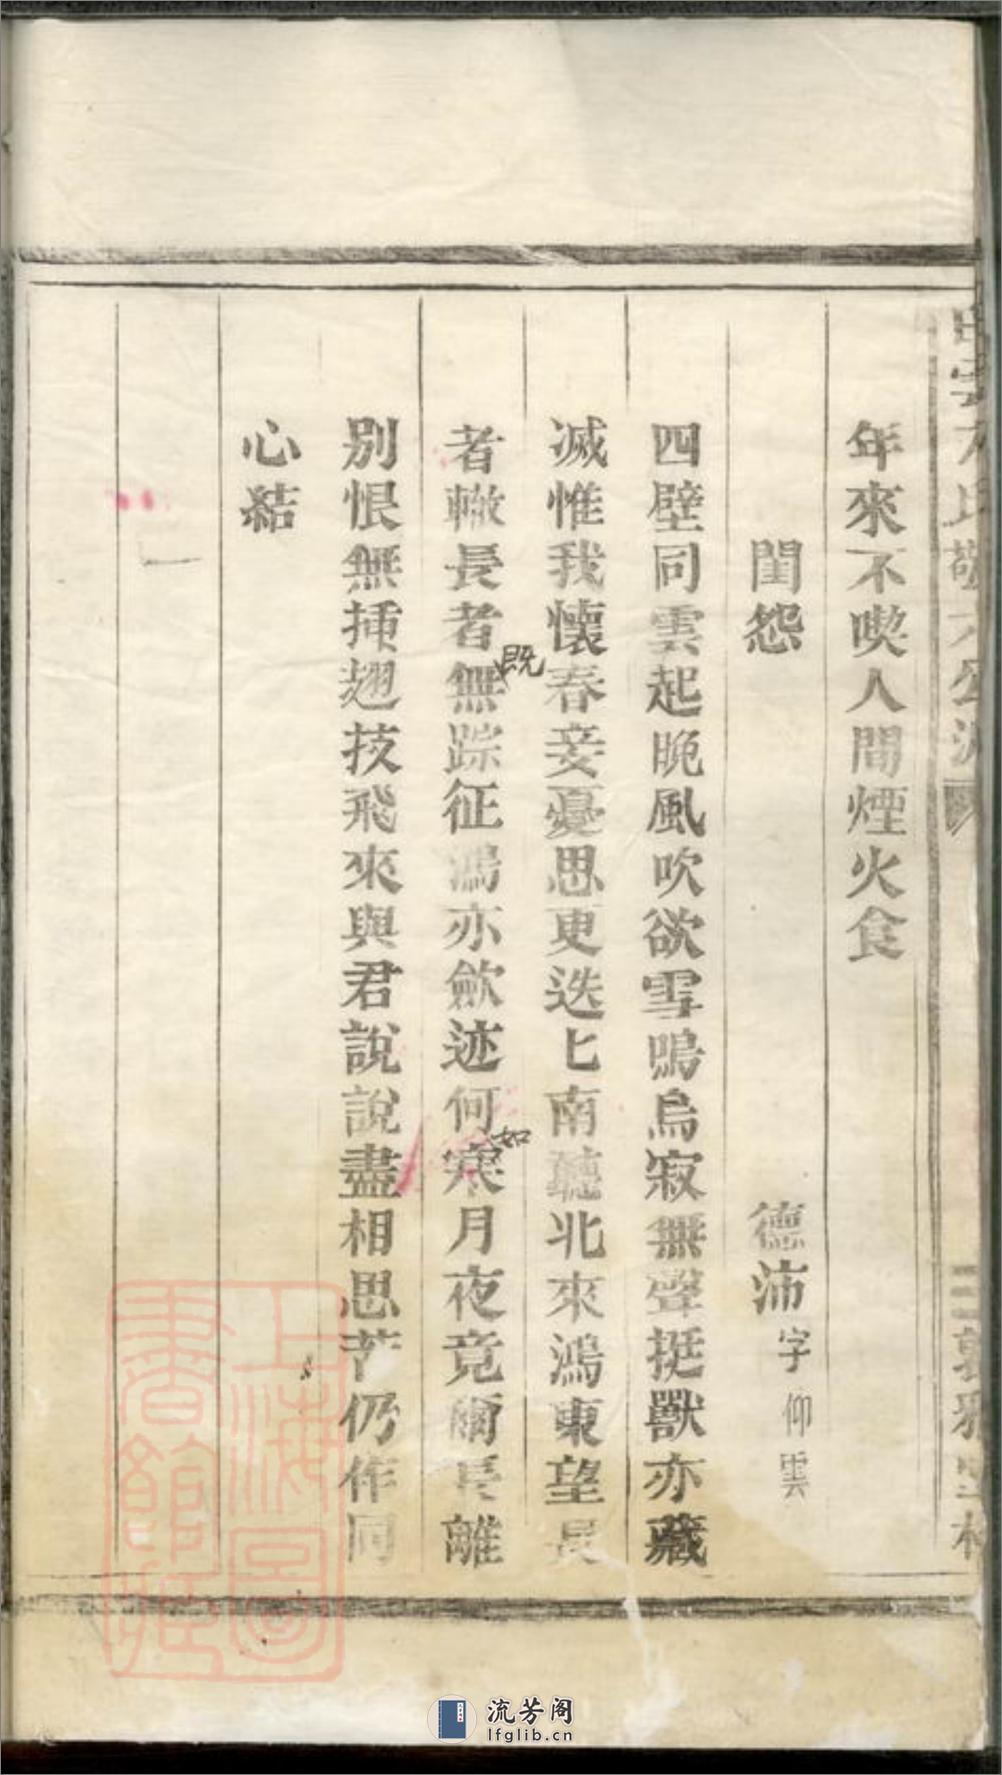 年來不喫人間煙火食
閨怨 德沛字仰雲
四壁同雲起晚風吹欲雪鳴烏寂無聲挺獸亦藏
滅惟我懷春妾憂思更迭匕南聽北來鴻東望長
者轍長者無踪征鴻亦歛迹何寒月夜竟爾長離
既
如
別恨無揷翅技飛來與君說說盡相思苦仍作同
心結
上海圖
書館藏
流芳阁
lfglib.cn